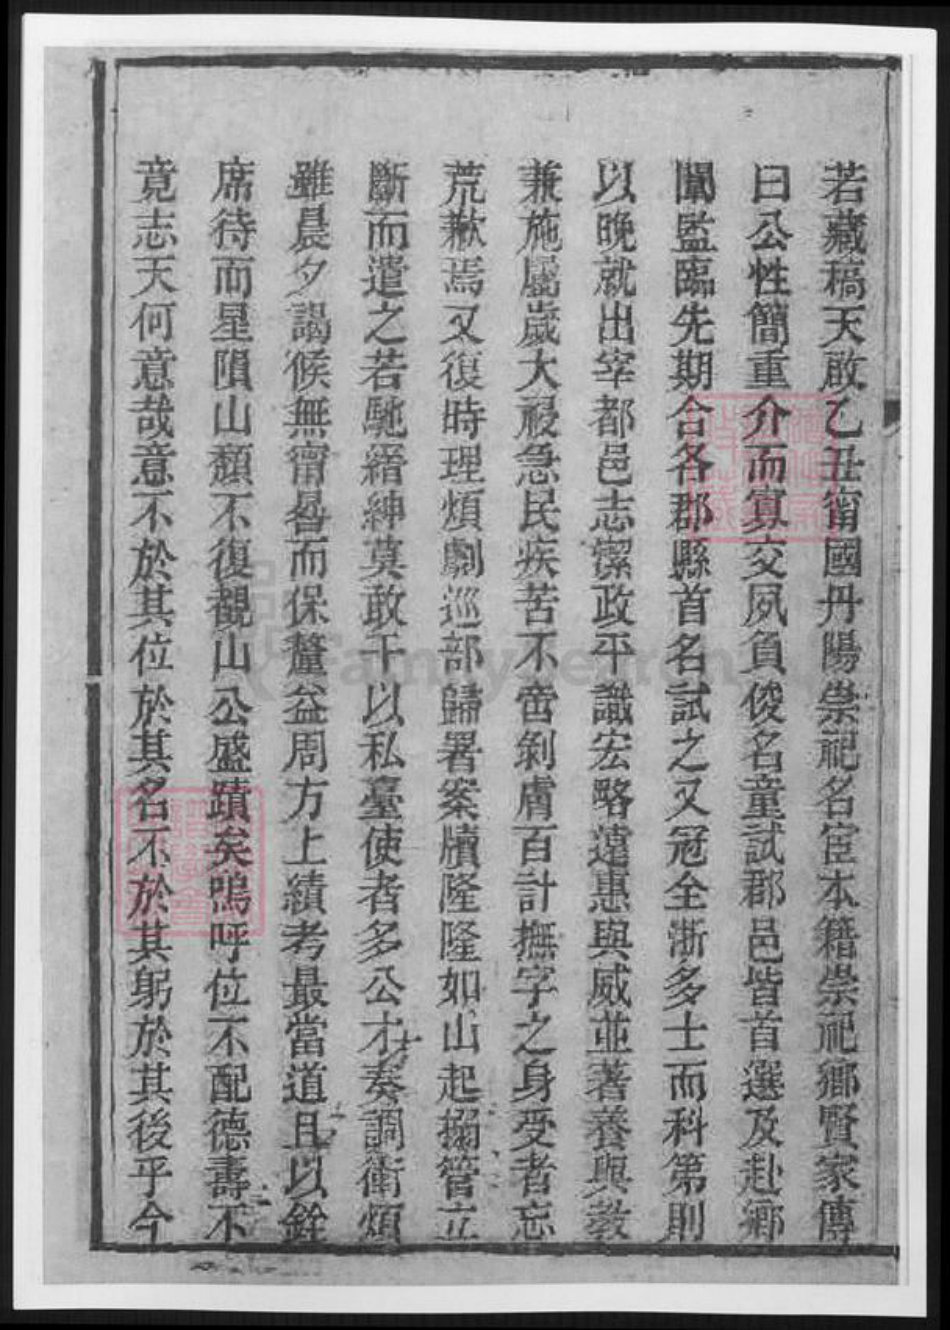 若藏稿天啟乙丑甯國丹陽崇祀名宦本籍崇祀鄉賢家傳
曰公性簡重介而寡交夙負俊名童試郡邑皆首選及赴鄉
闈監臨先期合各郡縣首名試之又冠全浙多士而科第則
以晚就出宰都邑志潔政平識宏略遠惠與威並著養與教
兼施屬歲大祲急民疾苦不啻剝膚百計撫字之身受者忘
荒歉焉又復時理煩劇巡部歸署案牘隆隆如山起搦管立
斷而遣之若馳縉紳莫敢干以私臺使者多公才奏調衝煩
雖晨夕謁候無甯晷而保釐益周方上績考最當道且以銓
席待而星隕山頹不復覩山公盛蹟矣嗚呼位不配德壽不
竟志天何意哉意不於其位於其名不於其躬於其後乎今
FamilySearch